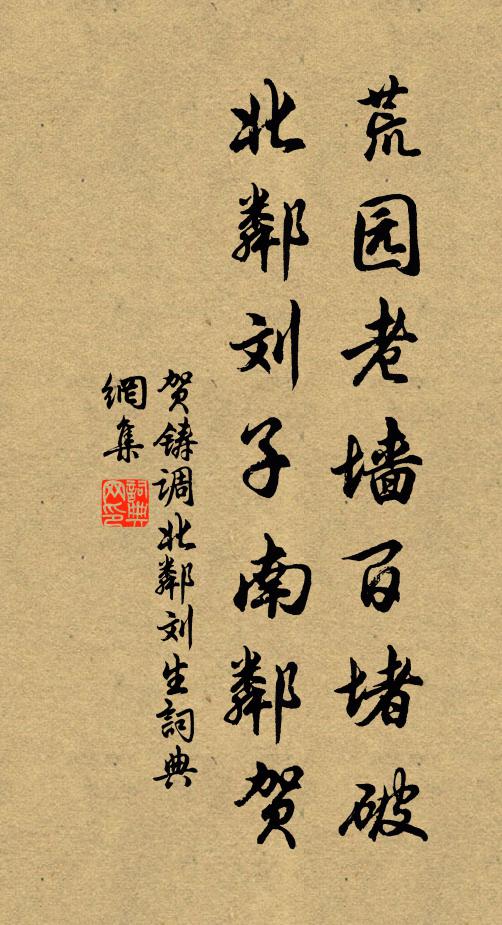 荒园老墙百堵破
北鄰刘子南鄰贺
贺铸调北鄰刘生詞典
網集
詞典网印